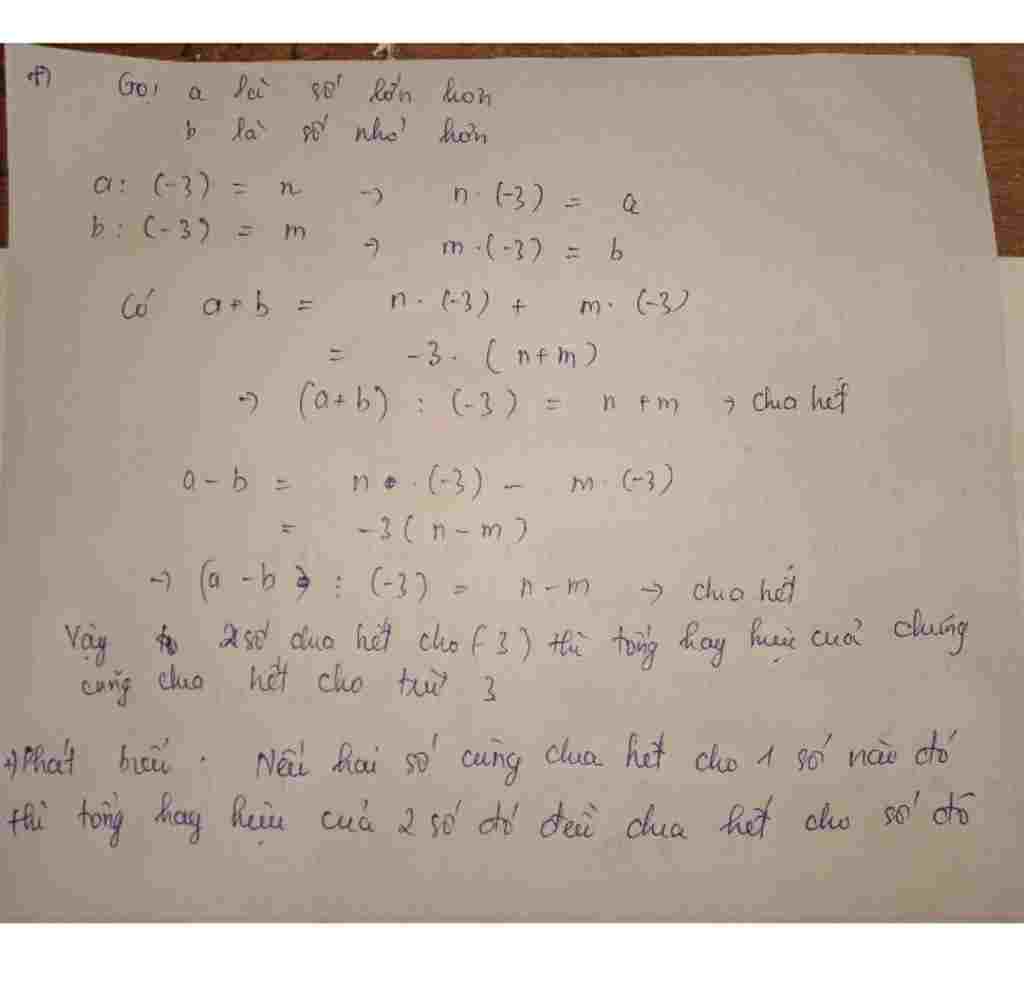 +) Gọi a là số lớn hơn
b là số nhỏ hơn
a : (-3) = n → n . (-3) = a
b : (-3) = m → m . (-3) = b
Có a + b = n . (-3) + m . (-3)
= -3 . (n + m)
→ (a + b) : (-3) = n + m → chia hết
a - b = n . (-3) - m . (-3)
= -3 (n - m)
→ (a - b) : (-3) = n - m → chia hết
Vậy 2 số chia hết cho (-3) thì tổng hay hiệu của chúng
cũng chia hết cho trừ 3
+) Phát biểu : Nếu hai số cùng chia hết cho 1 số nào đó
thì tổng hay hiệu của 2 số đó đều chia hết cho số đó